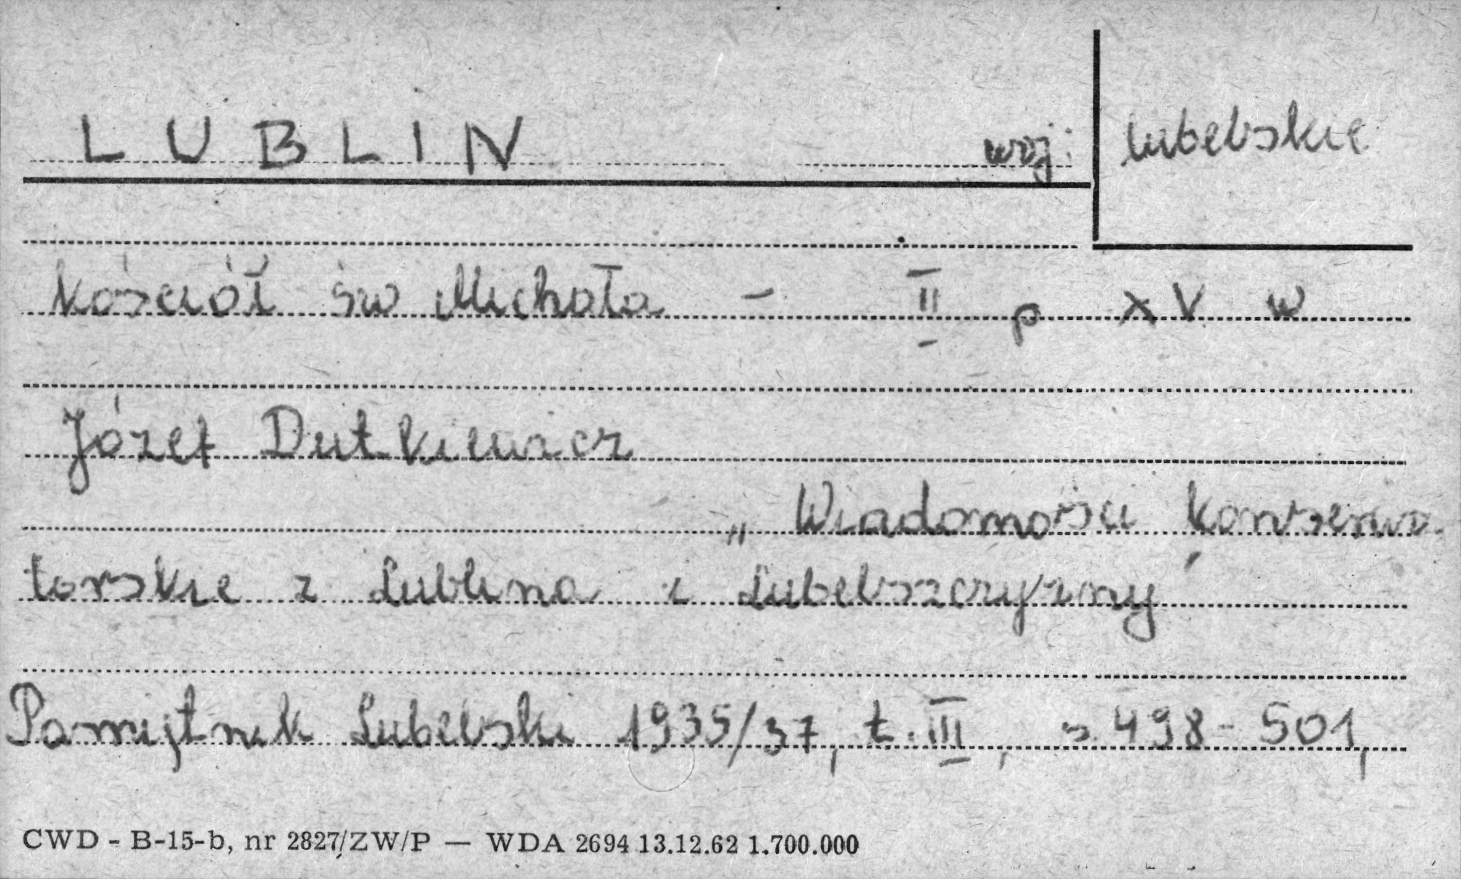 LUBLIN woj: lubelskie
Kościół św Michała - II p XV w
Józef Dutkiewicz
„Wiadomości konserwa-
torskie z Lublina i Lubelszczyzny"
Pamiętnik Lubelski 1935/37, t. III, s. 498-501,
CWD - B-15-b, nr 2827/ZW/P — WDA 2694 13.12.62 1.700.000